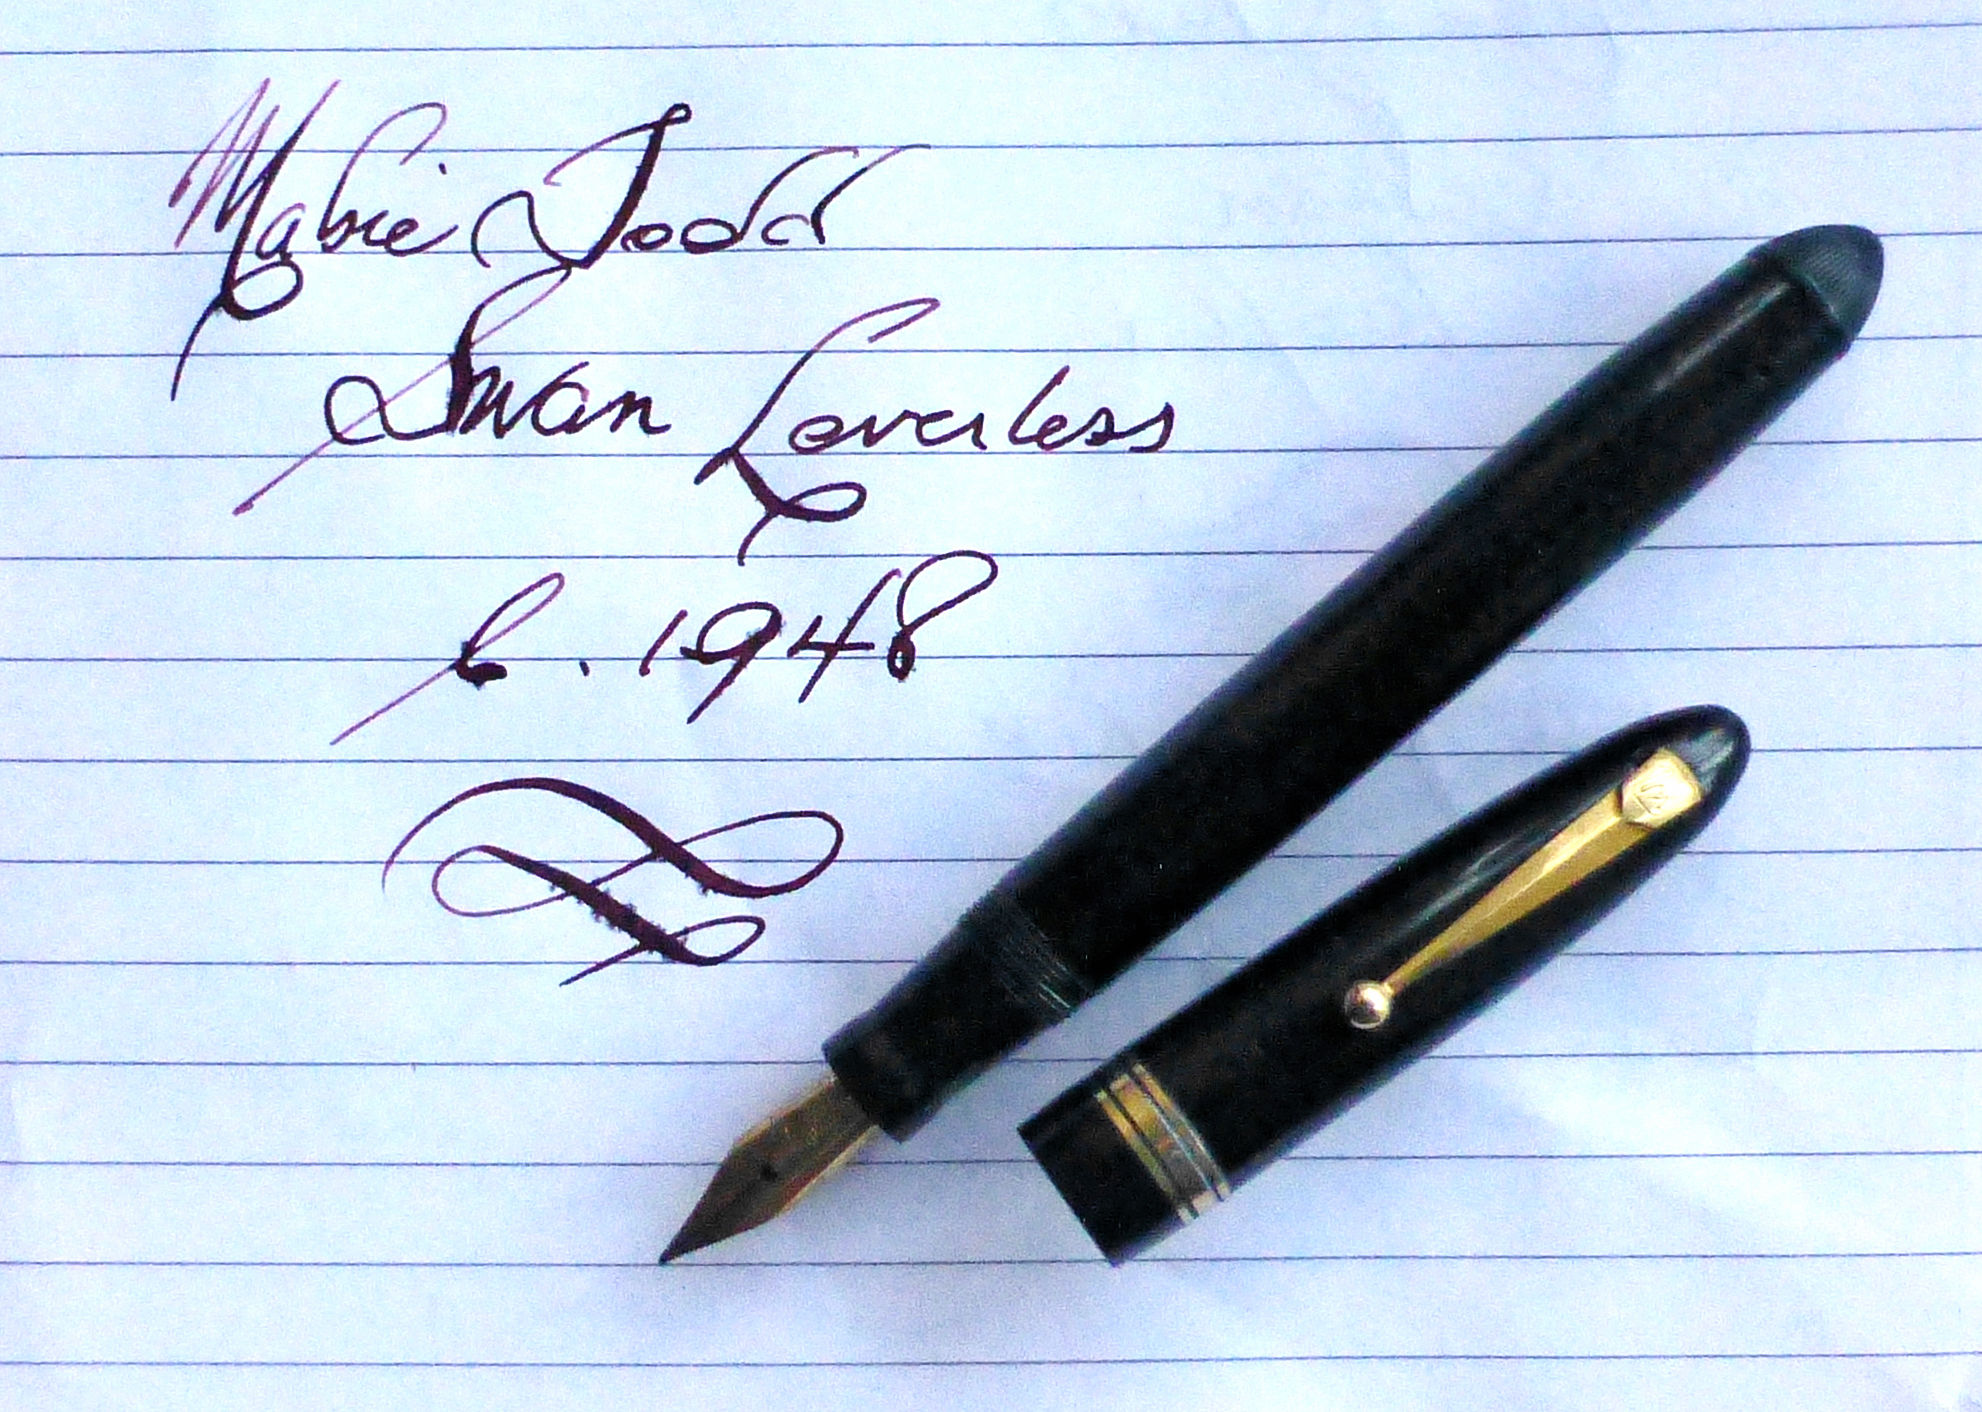 Mabie Todd
Swan Leverless
c. 1948